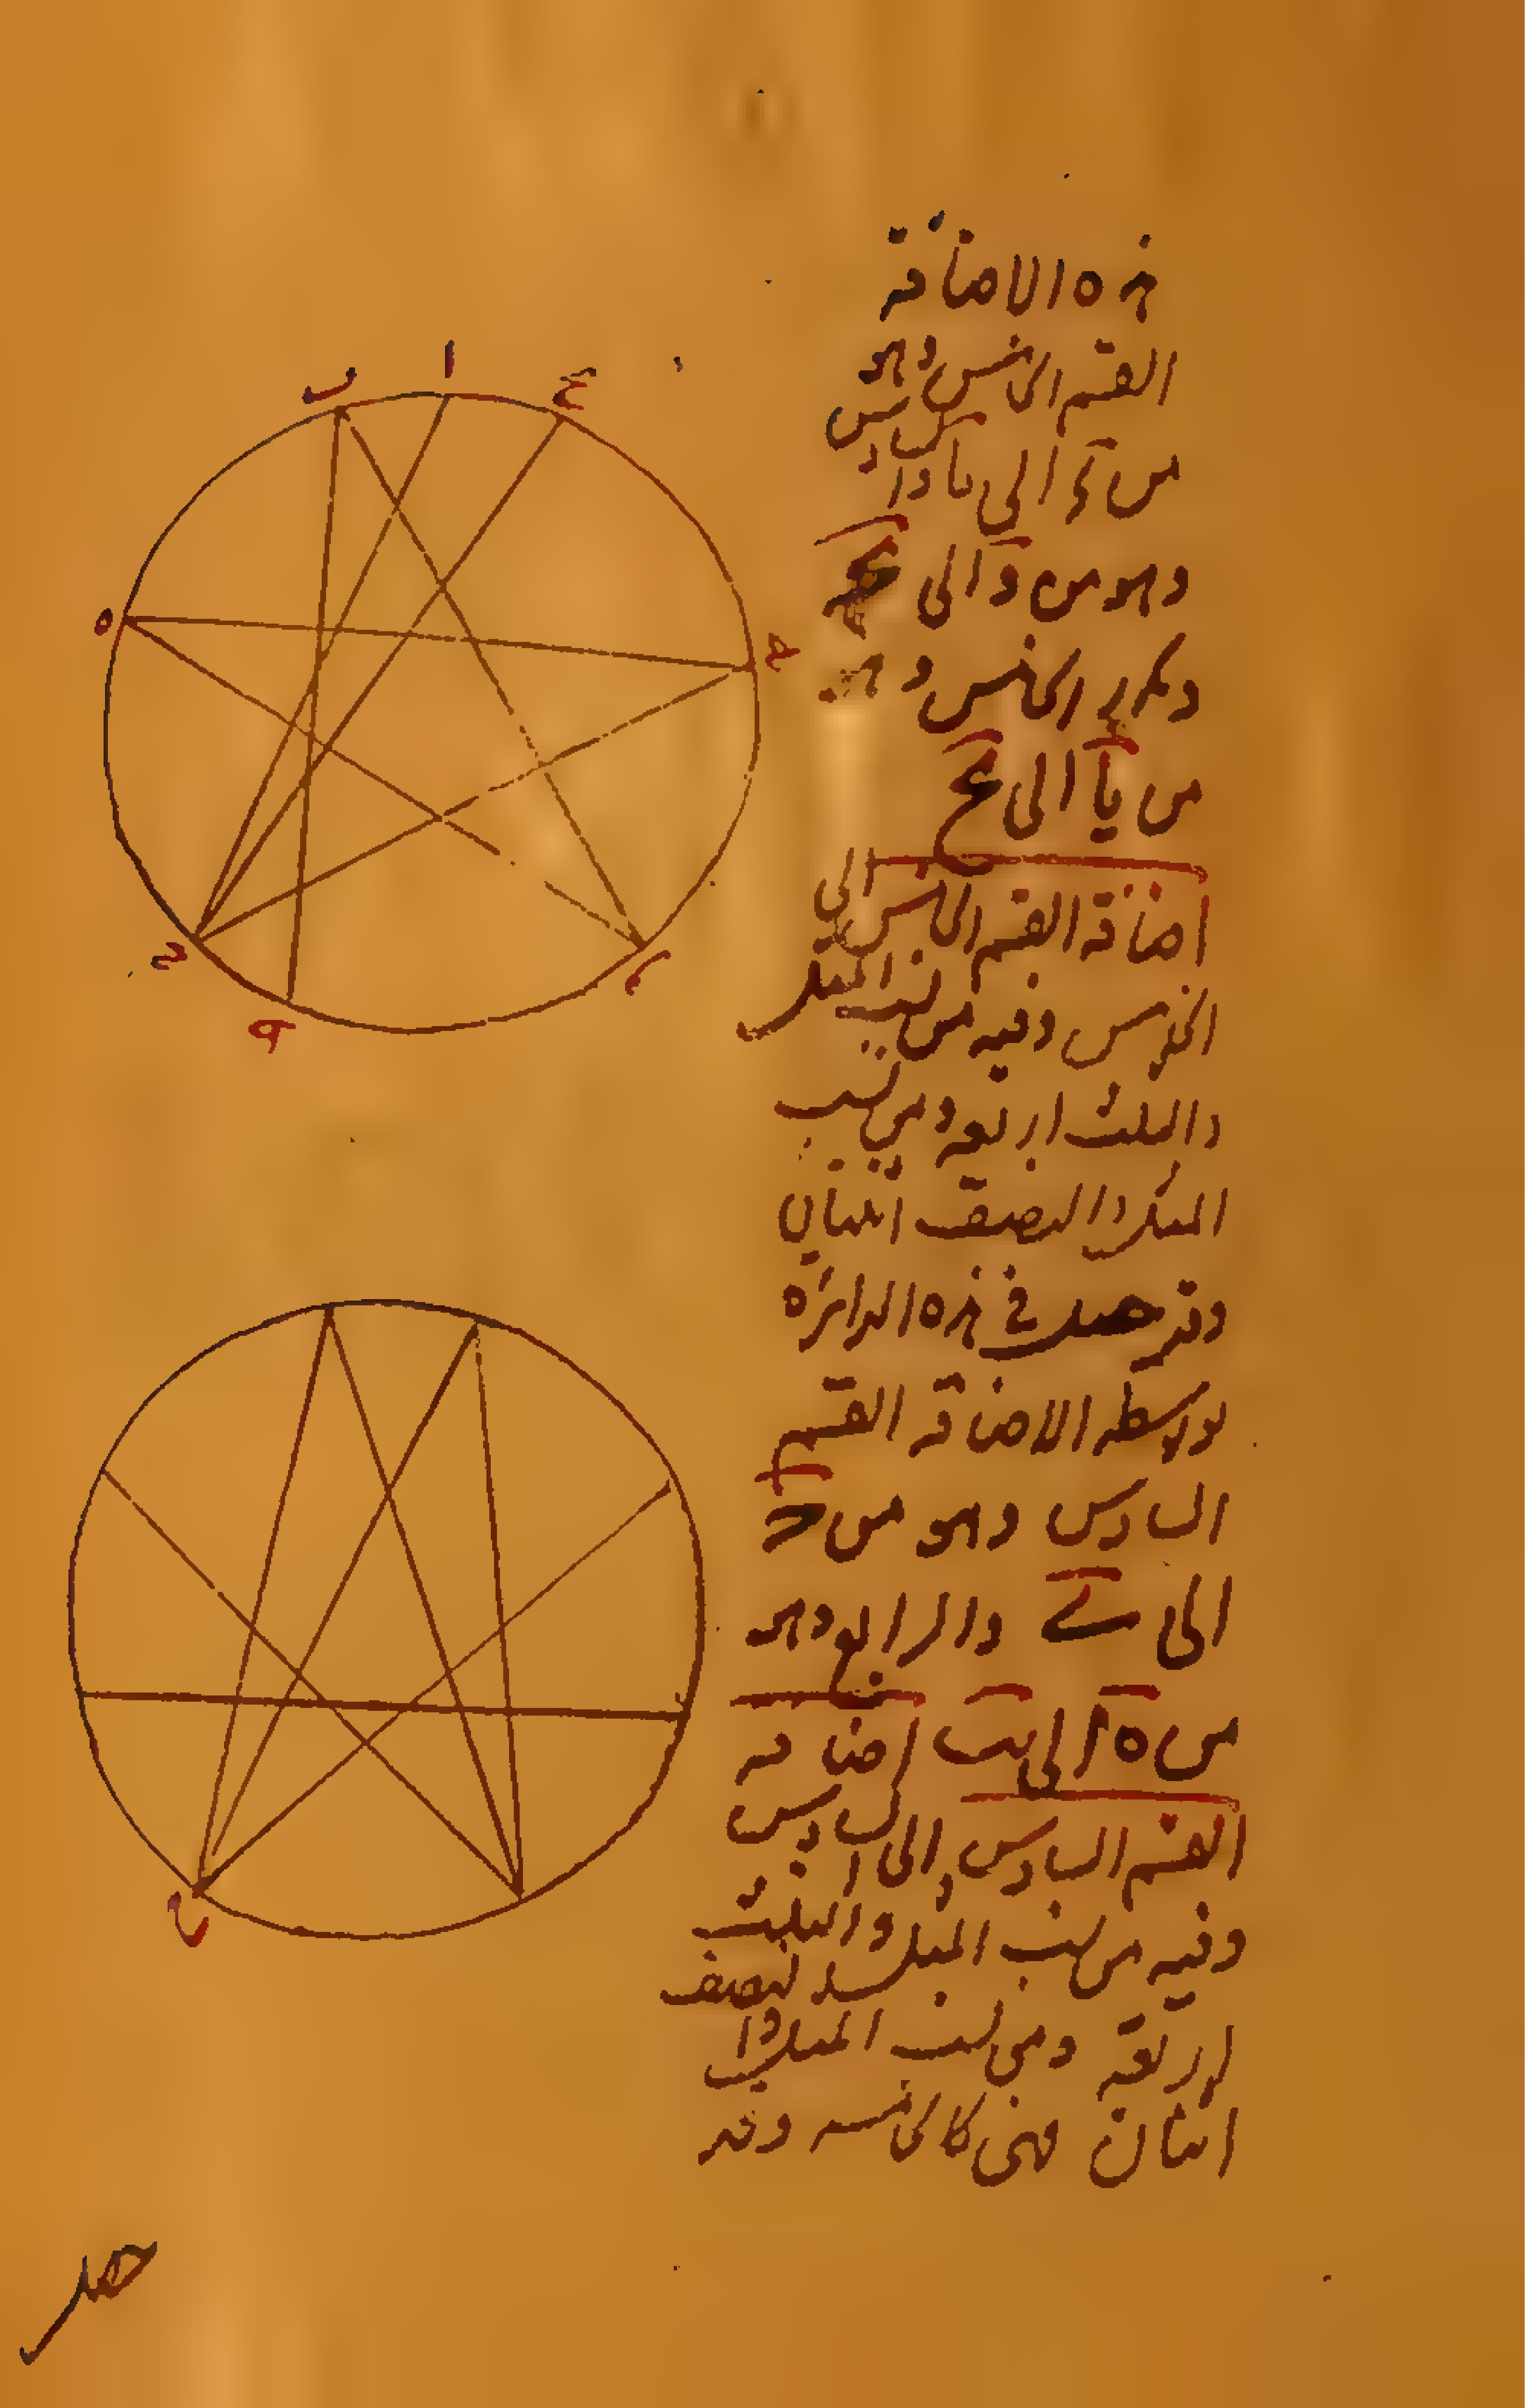 هذه الاضافة
القسم الخامس وهو
من ح الى يا والسادس
وهو من د الى يح
وتكرر الخامس وهو
من يا الى يح
اضافة القسم الخامس الى
الخامس وفيه من نسب المثل
والثلث اربعه ومن نسب
المثل والنصف اثنتان
وقد حصل في هذه الدائره
بواسطه الاضافة القسم
السادس وهو من ح
الى والرابع وهو
من ه الى يب اضافه
القسم السادس الى السادس
وفيه من نسب المثل والثلث
اربعة ومن نسب المثل والنصف
اثنتان فهي كالخامسه وقد
حصل